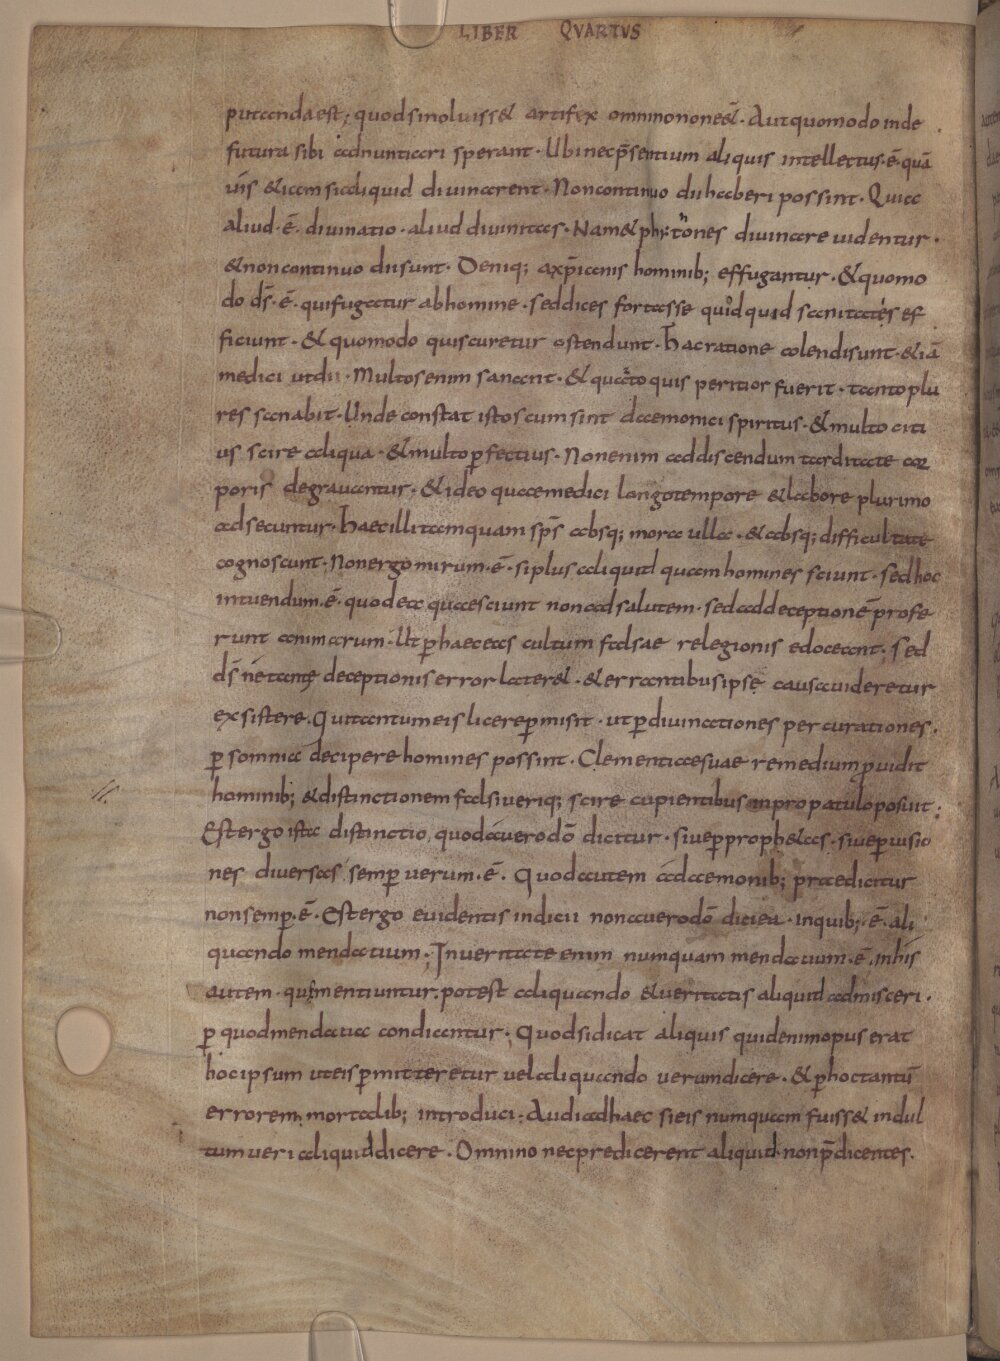 LIBER QVARTVS
putanda est; quod si noluisset artifex omnino non eēt. Aut quomodo inde
futura sibi adnuntiari sperant. Ubi nec p̄sentium aliquis intellectus. ē. quā
uis etiam si aliquid diuinarent. Non continuo dii haberi possint. Quia
aliud. ē. diuinatio. aliud diuinitas. Nam et phytones diuinare uidentur.
et non continuo dii sunt. Deniq; a xp̄ianis hominib; effugantur. et quomo
do d̄s. ē. qui fugatur ab homine. sed dices fortasse quod quid sanitates ef
ficiunt. et quomodo quis curetur ostendunt. hac ratione colendi sunt. et iā
medici ut dii. Multos enim sanant. et quanto quis peritior fuerit. tanto plu
res sanabit. Unde constat istos cum sint daemonici spiritus. et multo citi
us scire aliqua. et multo ꝑfectius. Non enim ad discendum tarditate cor
poris degrauantur. et ideo quae medici longo tempore et labore plurimo
adsecuntur. haec illi tamquam sp̄s absq; mora ulla. et absq; difficultate
cognoscunt. Non ergo mirum. ē. si plus aliquid quam homines sciunt. sed hoc
intuendum. ē. quod ea quae sciunt non ad salutem. sed ad deceptionē profe
runt animarum. Ut ꝑ haec eas cultum falsae relegionis edoceant; sed
d̄s ne tantę deceptionis error lateret. et errantibus ipsę causa uideretur
exsistere. Qui tantum eis licere ꝑmisit. ut ꝑ diuinationes per curationes.
ꝑ somnia decipere homines possint. Clementiae suae remedium ꝓuidit
hominib; et distinctionem falsi ueriq; scire cupientibus in propatulo posuit:
Est ergo ista distinctio, quod a uero dō dicitur. siue ꝑ prophetas. siue ꝑ uisio
nes diuersas semꝑ uerum. ē. Quod autem a daemonib; praedicitur
non semꝑ. ē. Est ergo euidentis indicii non a uero dō dici ea. in quib; ē. ali
quando mendatium. In ueritate enim numquam mendacium. ē. in his
autem. qui mentiuntur. potest aliquando et ueritatis aliquid admisceri.
ꝑ quod mendacia condiantur. Quod si dicat aliquis quid enim opus erat
hoc ipsum ut eis ꝑmitteretur uel aliquando uerum dicere. et ꝑ hoc tantū
errorem mortalib; introduci. Audi ad haec si eis numquam fuisset indul
tum ueri aliquid dicere. Omnino nec predicerent aliquid. non p̄dicentes.